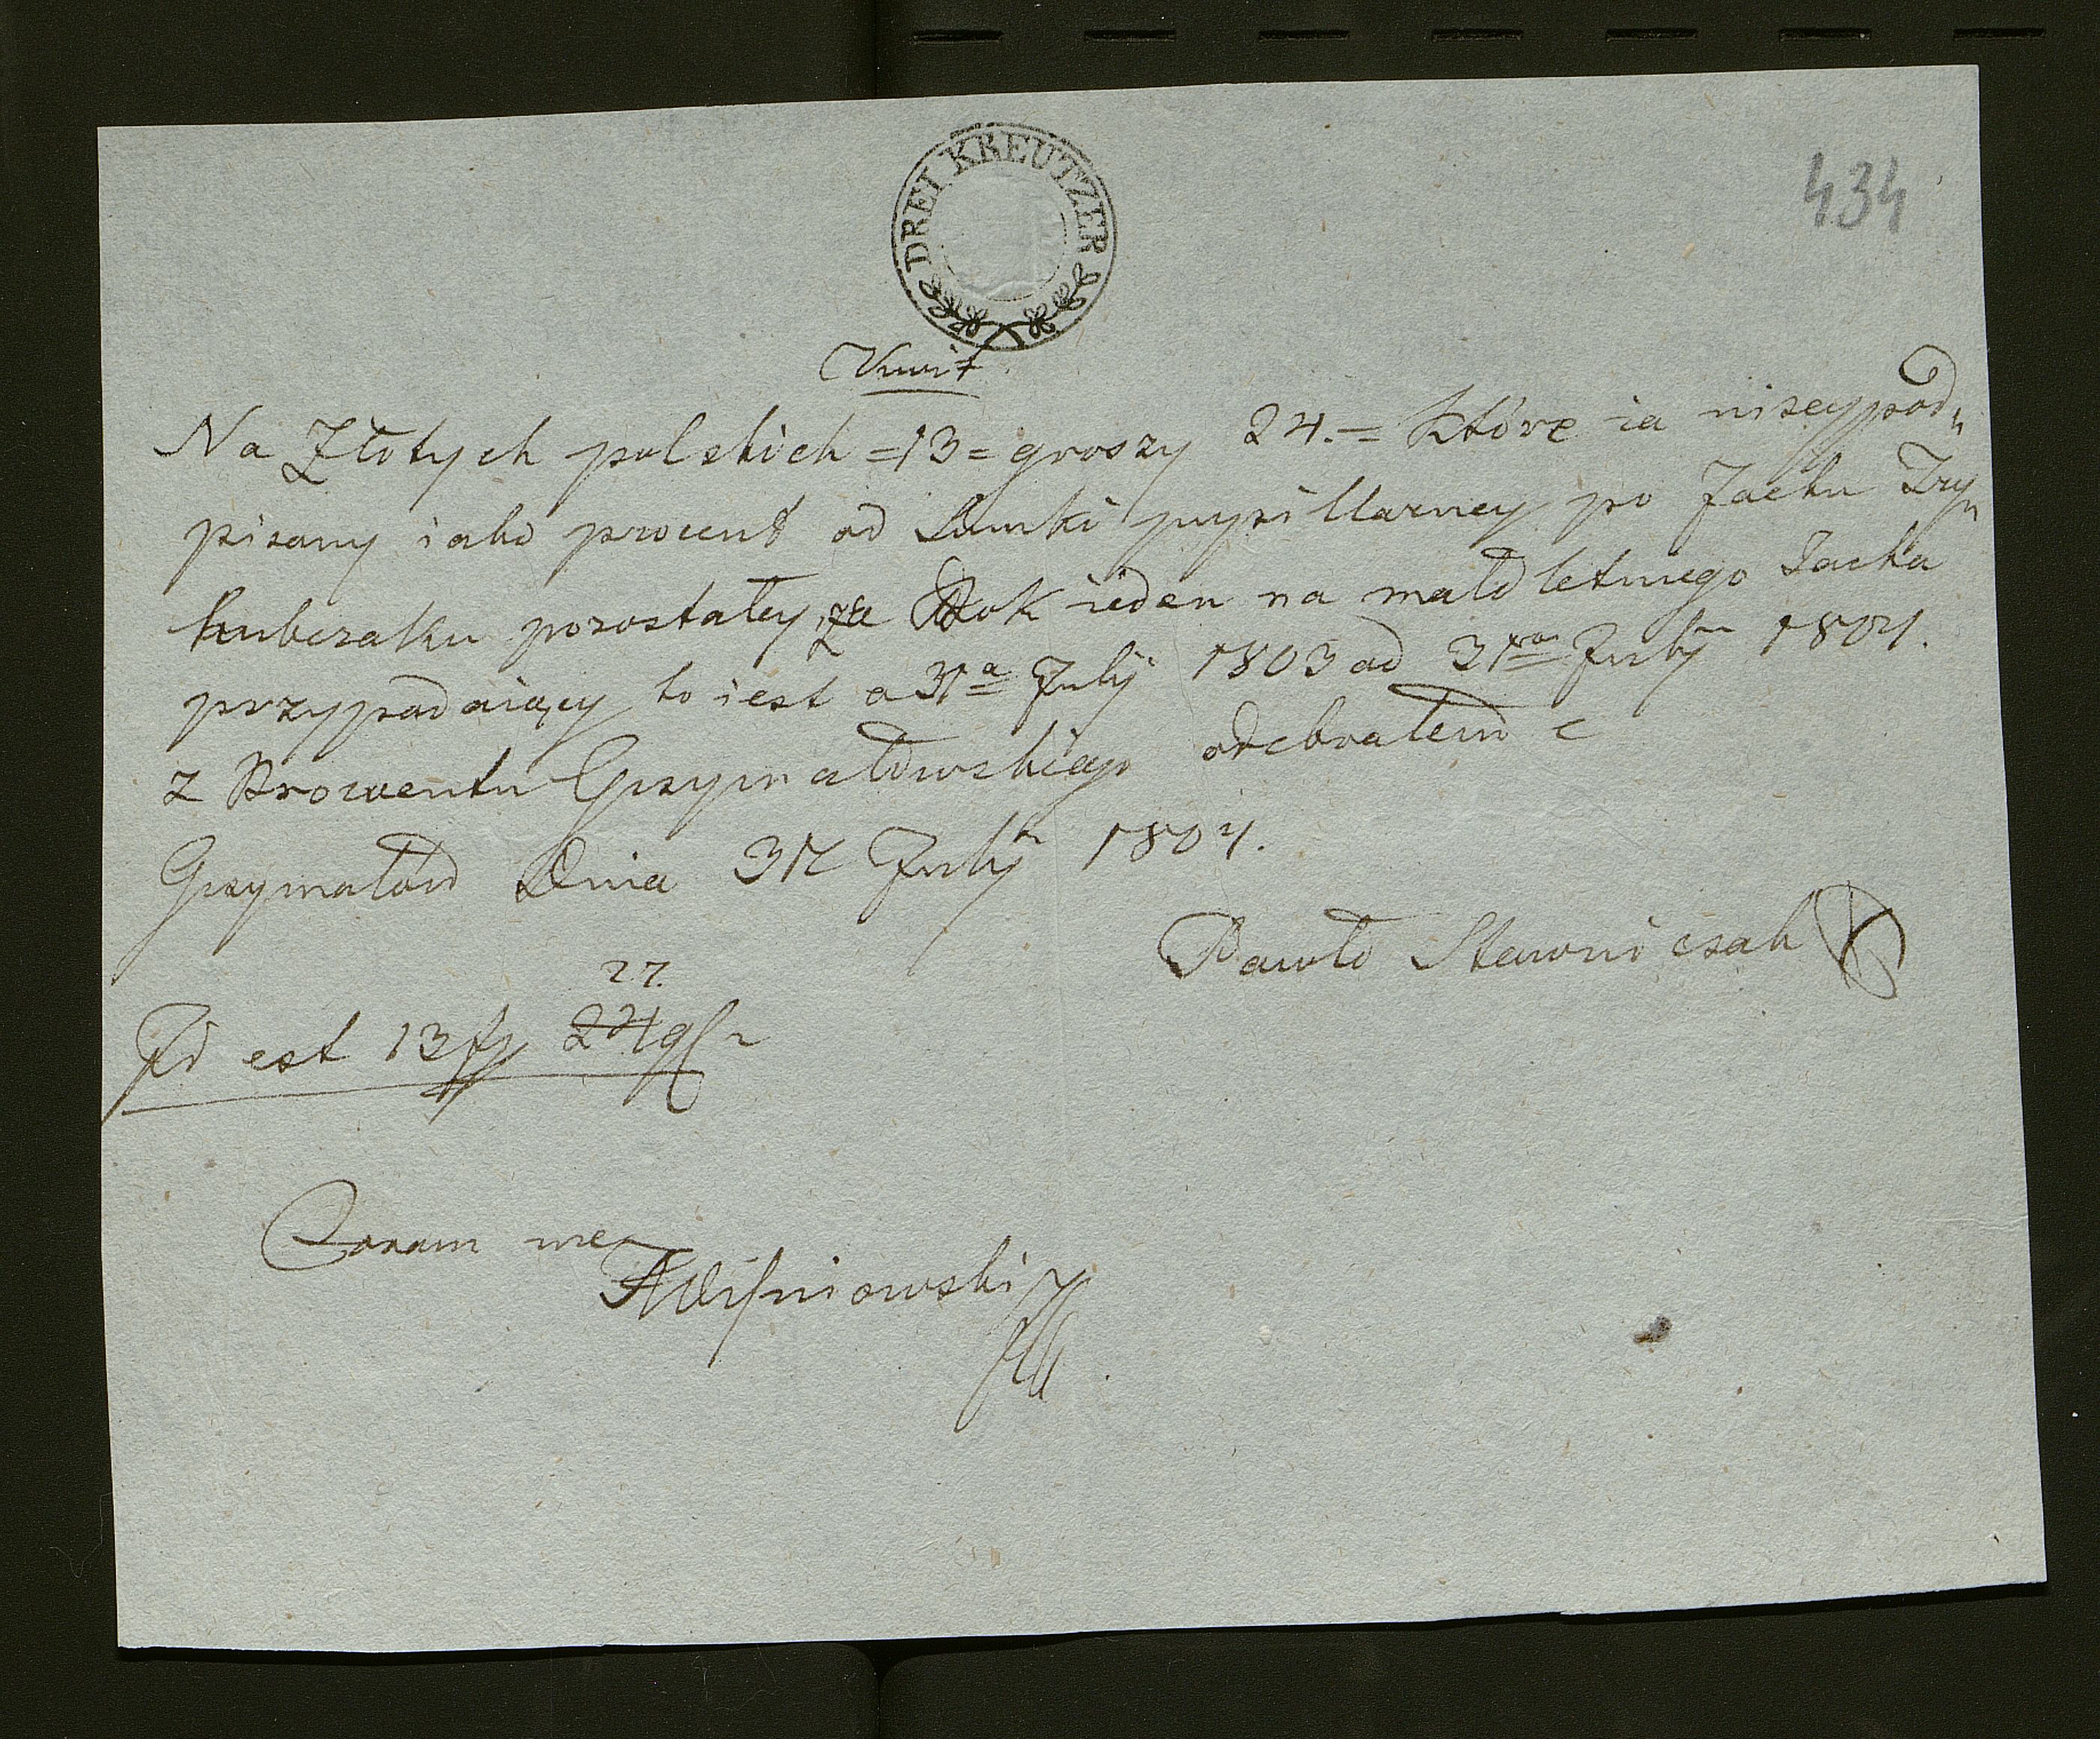 DREI KREUTZER
434
Kwit
Na Złotych polskich =13= groszy 24.= które ia niżey pod„
pisany iako procent od Sumki pupillarney po Jacku Try„
hubczaku pozostałey, za Rok ieden na małoletniego Jacka
przypadaiący to iest a 31ª Julÿ 1803 ad 31ᵐᵃ Julÿ 1804.
z Prowentu Grzymałowskiego odebrałem
Grzymałów Dnia 31 Julÿ 1804.
Pawło Stawniczak
27.
Id est 13 24 g
Coram me
Wiśniowski